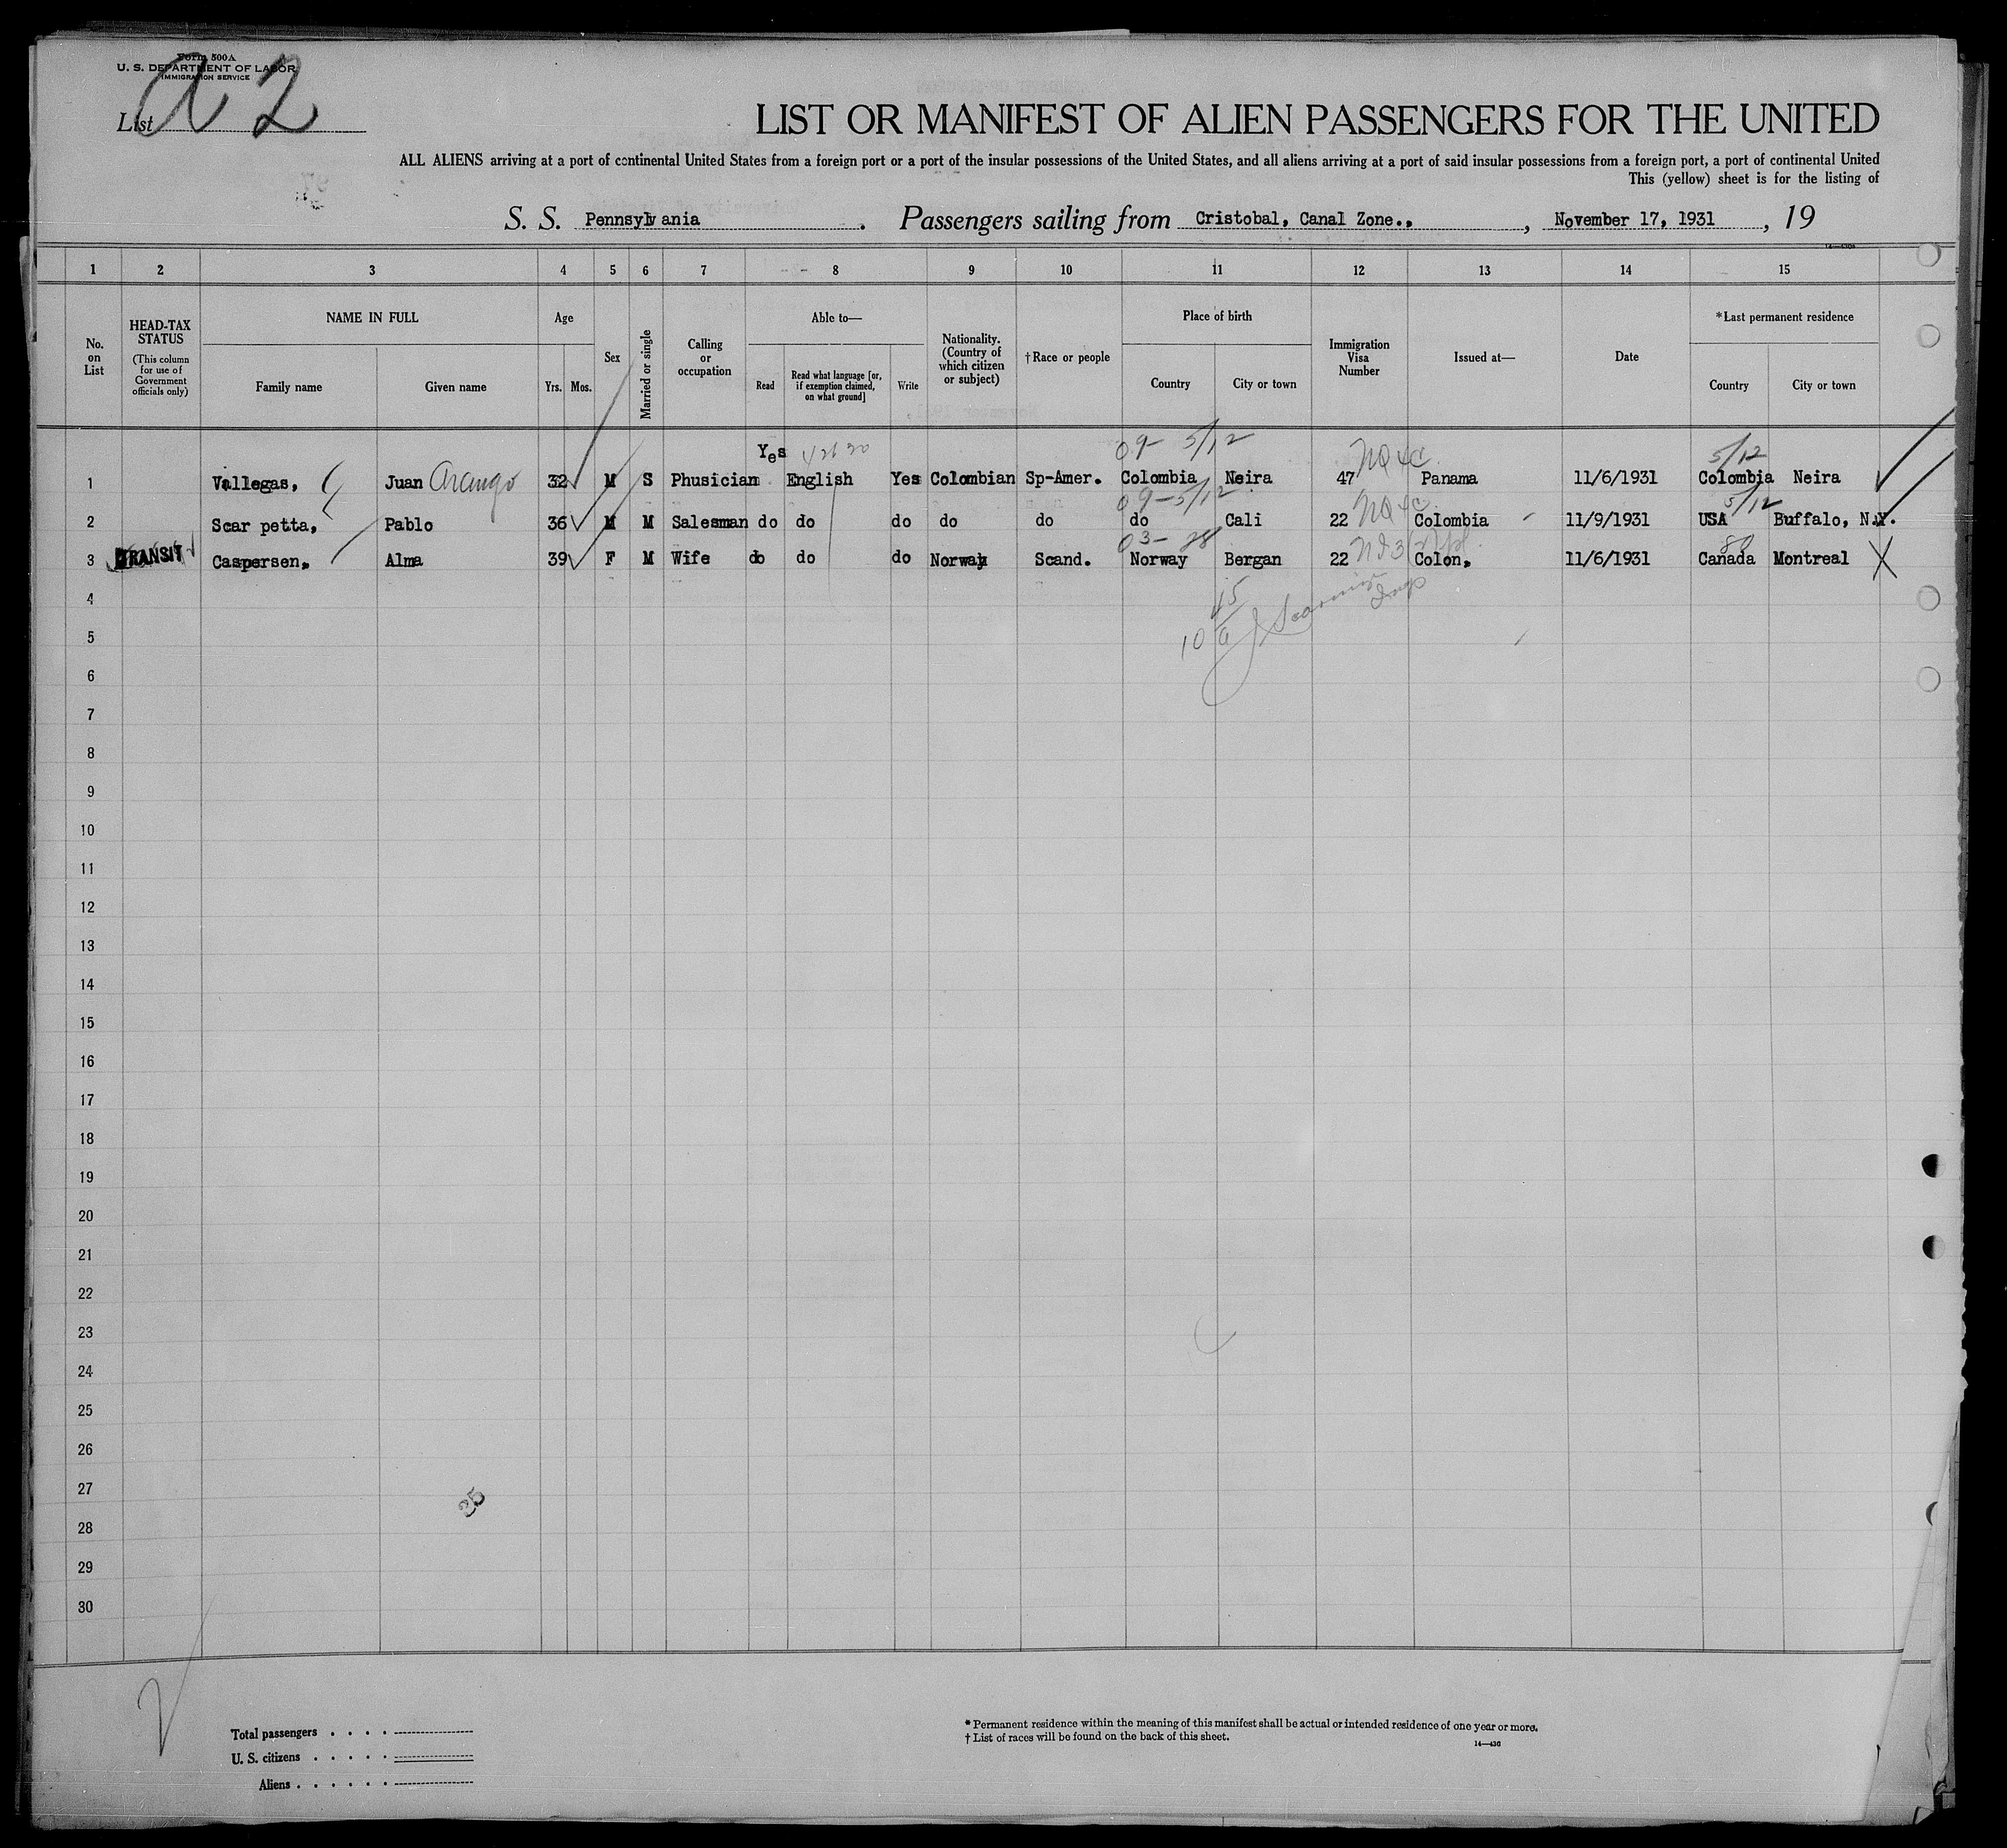 Form 500A
U. S. DEPARTMENT OF LABOR
IMMIGRATION SERVICE
List A 2
LIST OR MANIFEST OF ALIEN PASSENGERS FOR THE UNITED
ALL ALIENS arriving at a port of continental United States from a foreign port or a port of the insular possessions of the United States, and all aliens arriving at a port of said insular possessions from a foreign port, a port of continental United
This (yellow) sheet is for the listing of
S. S. Pennsylvania . Passengers sailing from Cristobal, Canal Zone., , November 17, 1931 , 19
1 2 3 4 5 6 7 8 9 10 11 12 13 14 15
No. on List
HEAD-TAX STATUS
(This column for use of Government officials only)
NAME IN FULL
Family name
Given name
Age
Yrs.
Mos.
Sex
Married or single
Calling or occupation
Able to—
Read
Read what language [or, if exemption claimed, on what ground]
Write
Nationality. (Country of which citizen or subject)
†Race or people
Place of birth
Country
City or town
Immigration Visa Number
Issued at—
Date
*Last permanent residence
Country
City or town
Yes 09 5/12 NQ 4c 5/12
1 Vallegas, Juan Arango 32 M S Phusician English Yes Colombian Sp-Amer. Colombia Neira 47 Panama 11/6/1931 Colombia Neira
09-5/12 NQ 4c 5/12
2 Scar petta, Pablo 36 M M Salesman do do do do do do Cali 22 Colombia 11/9/1931 USA Buffalo, N.Y.
03-28
3 TRANSIT Caspersen, Alma 39 F M Wife do do do Norway Scand. Norway Bergan 22 Colon, 11/6/1931 Canada Montreal
4
5
6
7
8
9
10
11
12
13
14
15
16
17
18
19
20
21
22
23
24
25
26
27
25
28
29
30
Total passengers . . . .
U. S. citizens . . . . .
Aliens . . . . . .
* Permanent residence within the meaning of this manifest shall be actual or intended residence of one year or more.
† List of races will be found on the back of this sheet.
14—430